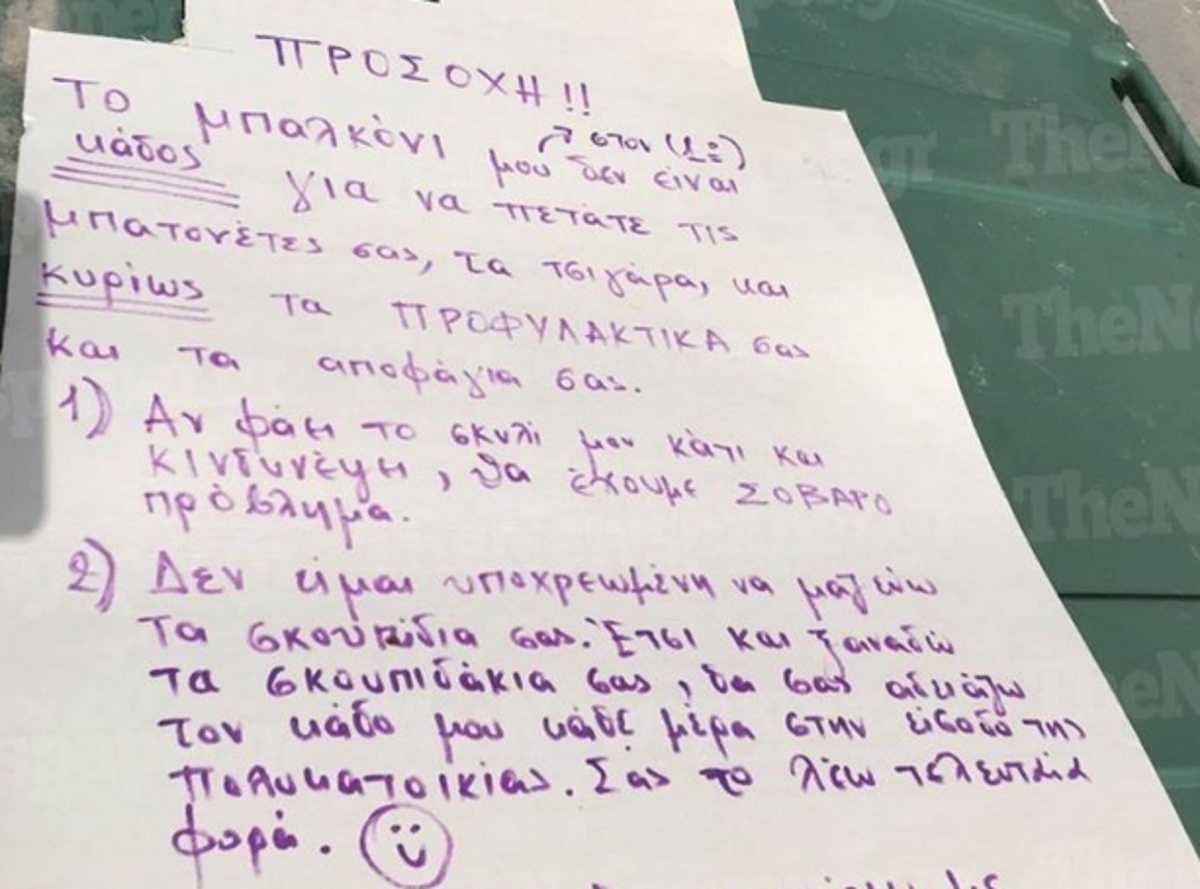 ΠΡΟΣΟΧΗ!!
Το μπαλκόνι μου δεν είναι
στον (1ο)
κάδος για να πετάτε τις
μπατονέτες σας, τα τσιγάρα, και
κυρίως τα ΠΡΟΦΥΛΑΚΤΙΚΑ σας
και τα αποφάγια σας.
1) Αν φάει το σκυλί μου κάτι και
κινδυνέψει, θα έχουμε ΣΟΒΑΡΟ
πρόβλημα.
2) Δεν είμαι υποχρεωμένη να μαζεύω
τα σκουπίδια σας. Έτσι και ξαναδώ
τα σκουπιδάκια σας, θα σας αδειάζω
τον κάδο μου κάθε μέρα στην είσοδο της
πολυκατοικίας. Σας το λέω τελευταία
φορά.
TheN
TheN
TheN